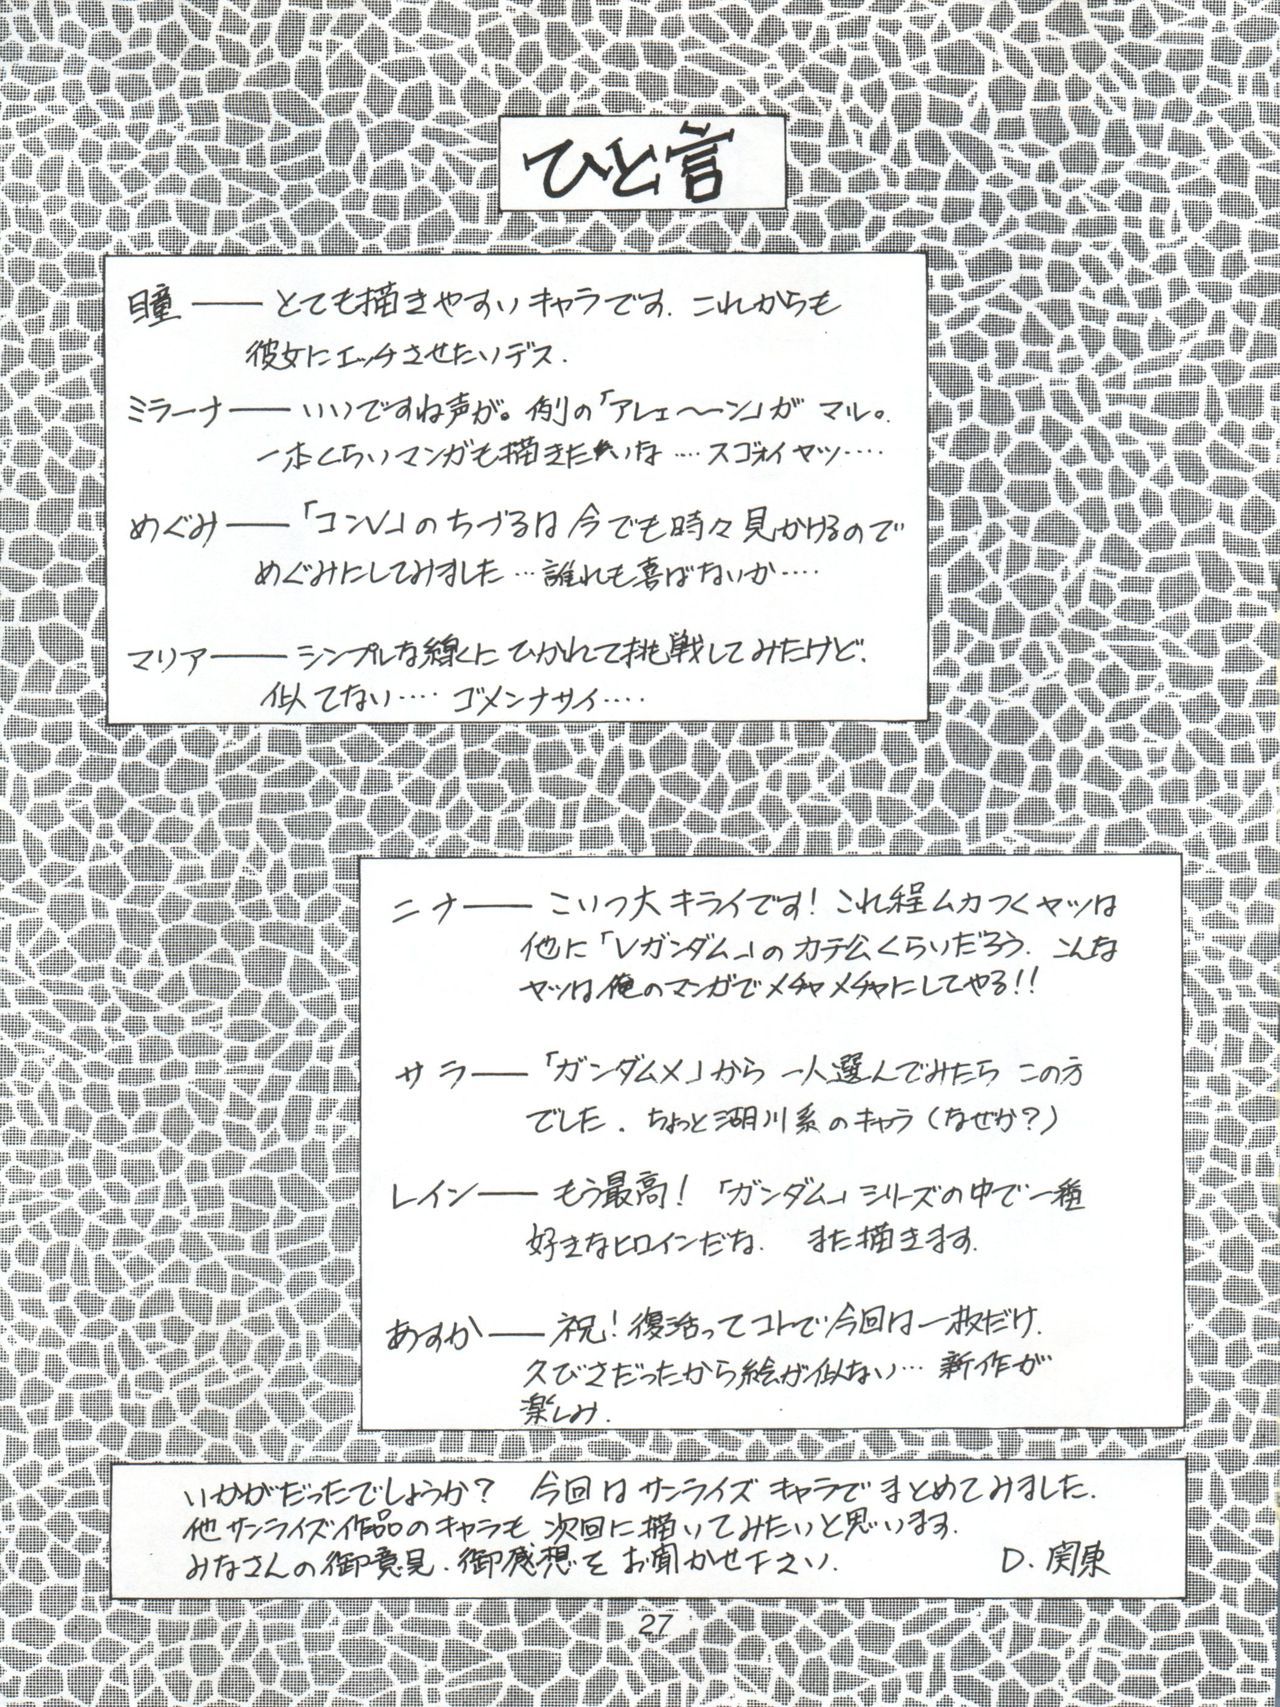 ひと言
瞳――とても描きやすいキャラです。これからも
彼女にエッチさせたいデス.
ミラーナ――いいですね声が。例の「アレェ〜〜ン」が マル。
一本くらいマンガも描きたいな‥‥スゴォイヤッ‥‥
めぐみ――「コンV」のちづるは今でも時々見かけるので
めぐみにしてみました…誰れも喜ばないか‥‥
マリア――シンプルな線にひかれて挑戦してみたけど.
似てない‥‥ ゴメンナサイ‥‥
ニナ――こいつ大キライです! これ程ムカつくヤツは
他に「Vガンダム」のカテ公くらいだろう. こんな
ヤツは俺のマンガでメチャメチャにしてやる!!
サラ――「ガンダムX」から 一人選んでみたら この方
でした. ちょっと湖川系のキャラ(なぜか?)
レイン――もう最高! 「ガンダム」シリーズの中で一種
好きなヒロインだな. また描きます.
あすか――祝! 復活ってコトで今回は一枚だけ.
久びさだったから絵が似ない… 新作が
楽しみ.
いかがだったでしょうか? 今回はサンライズ キャラで まとめてみました.
他サンライズ作品のキャラも 次回に描いてみたいと思います.
みなさんの御意見.御感想を お聞かせ下さい. D.関東
27